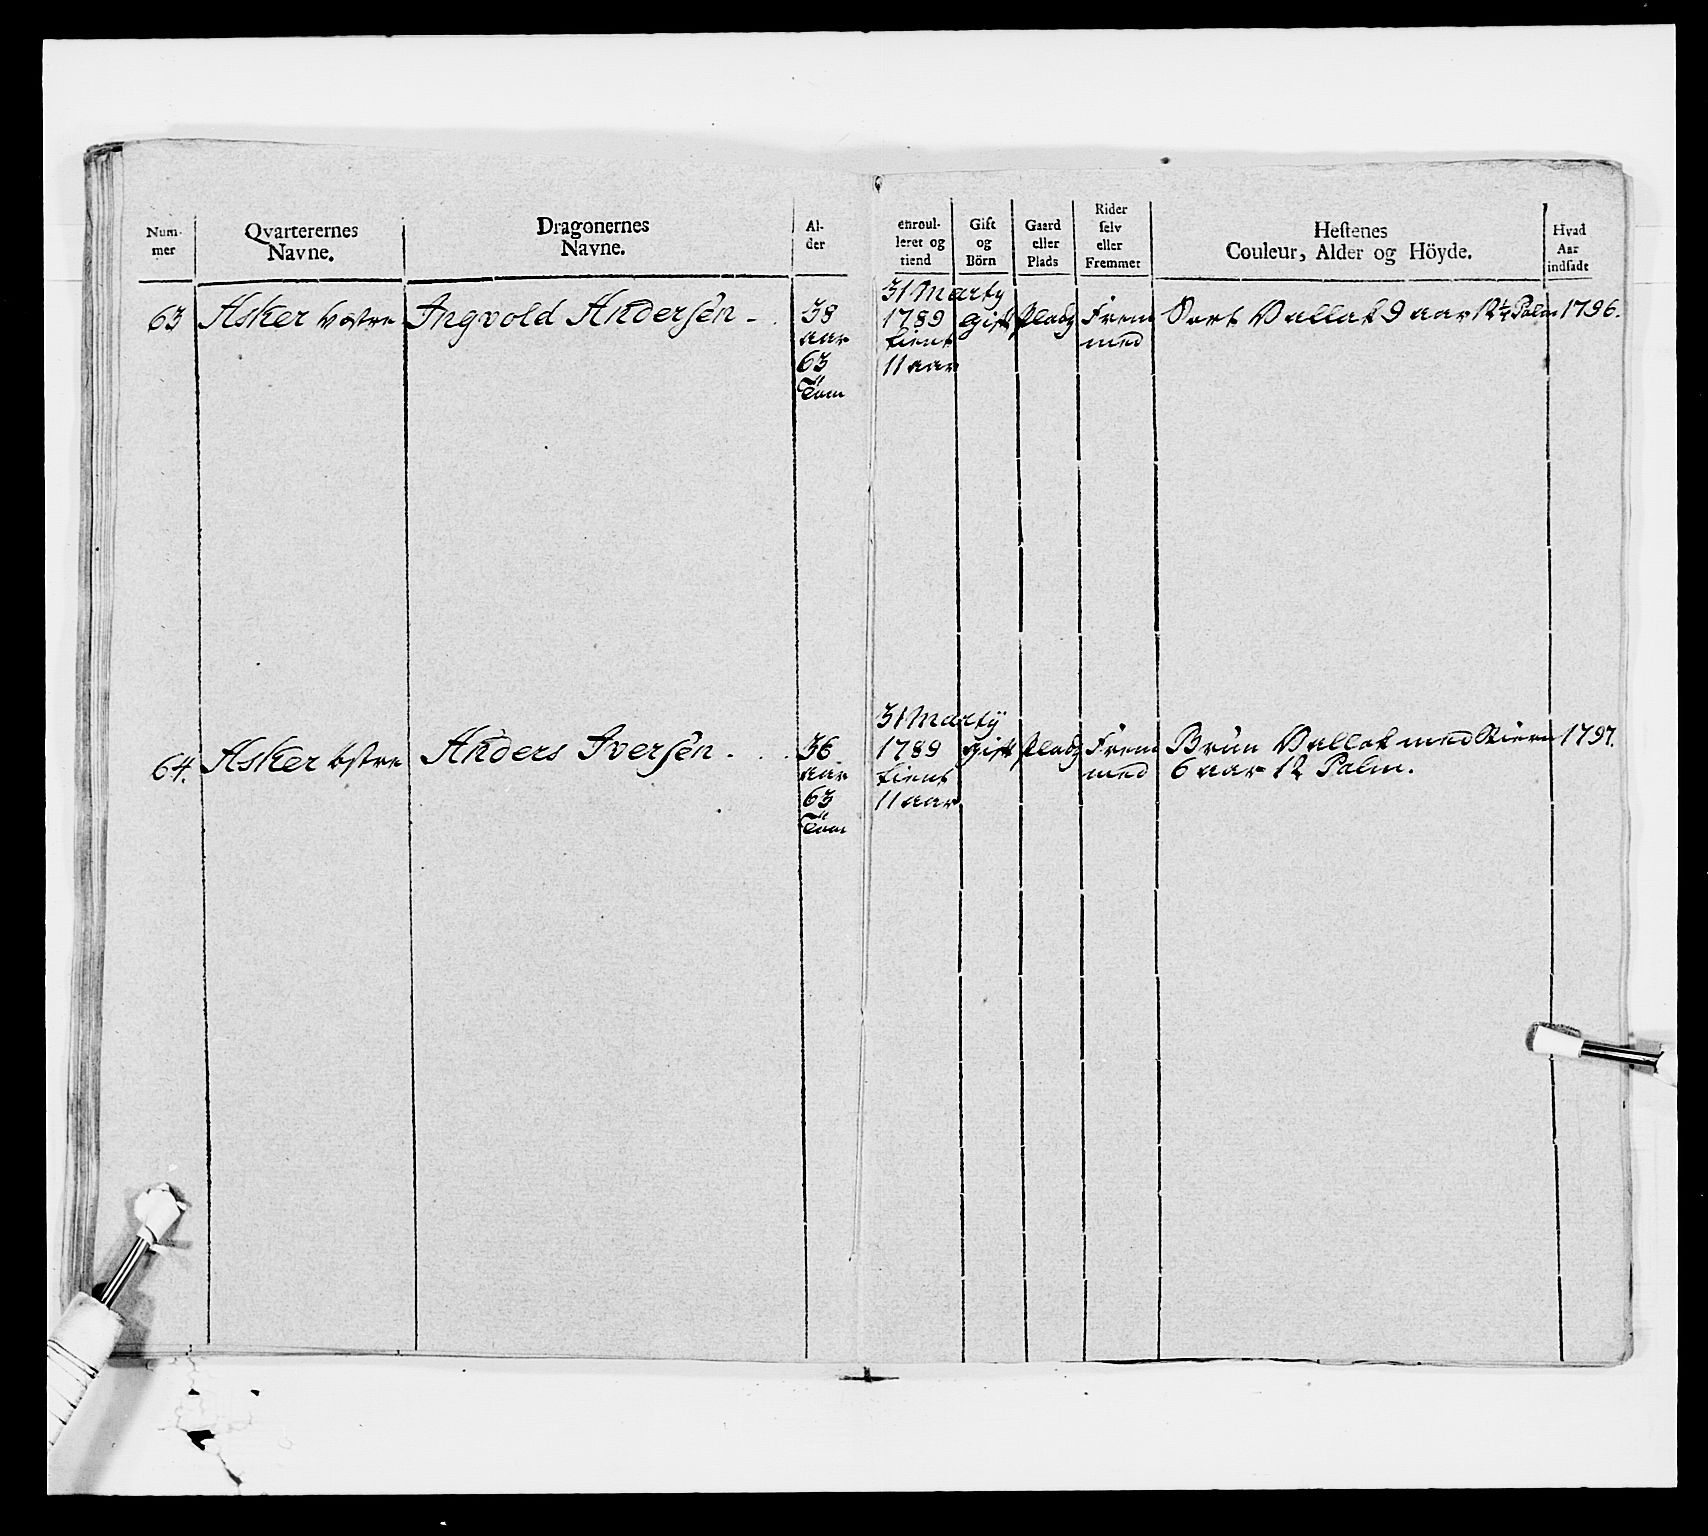 Num-
mer
Qvarterernes
Navne.
Dragonernes
Navne.
Al-
der
enroul-
leret og
tiend
Gift
og
Börn
Gaard
eller
Plads
Rider
selv
eller
Fremmet
Hestenes
Couleur, Alder og Höyde.
Hvad
Aar
indsadt
63
Asker vestre
Ingvold Andersen -
38
aar
63
Tom
31 Marty
1789
tient
11 aar
gift
Plads
Frem
med
Sort Vallak 9 aar 12¼ Palm
1796.
64.
Asker östre
Anders Iversen -
36
aar
63
Tom
31 Martÿ
1789
tient
11 aar
gift
Plads
Frem
med
Brun Vallak med Stiern
6 aar 12 Palm.
1797.